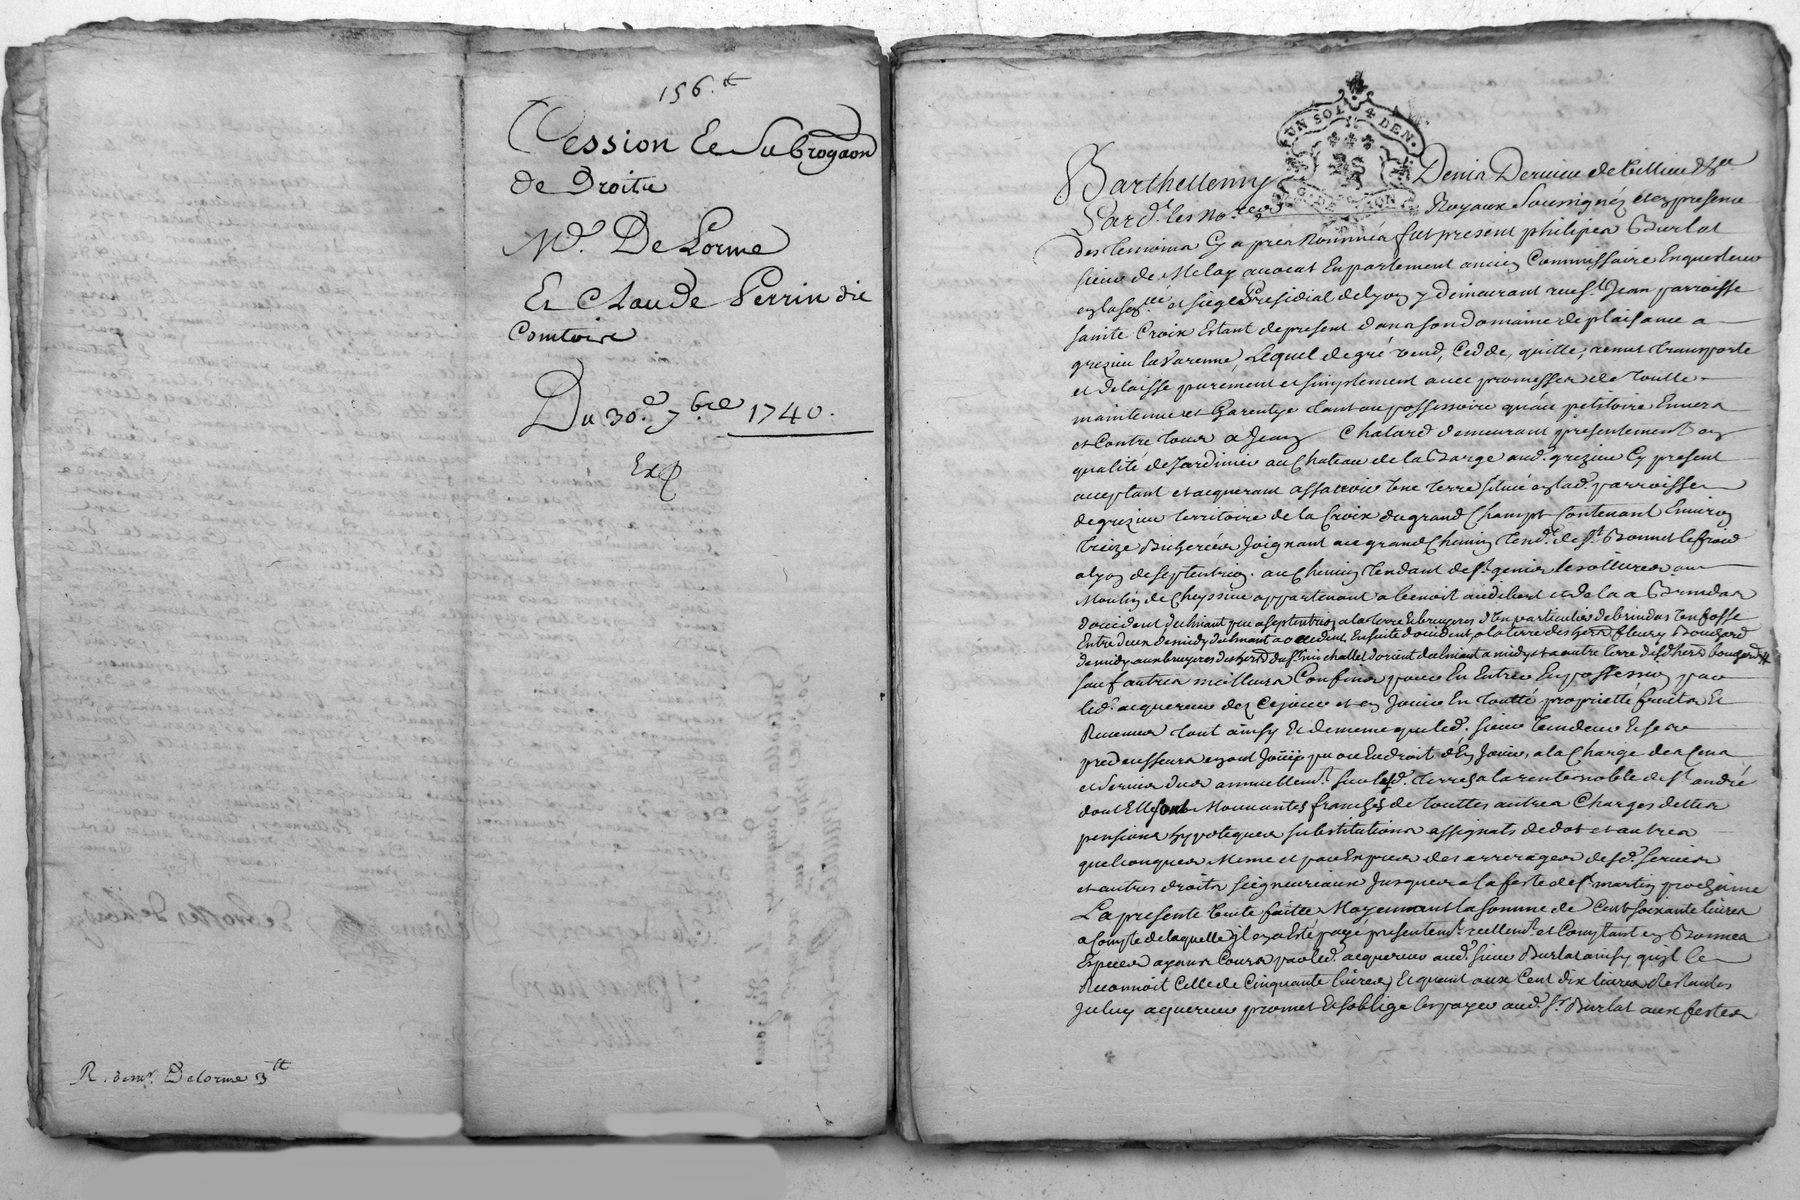 156.tt
Cession Et Subrogaon
de Droits
Mr. De Lorme
Et Claude Perrin dit
Comtois
Du 30.e 7bre 1740.
Exp
R. de mr. Delorme 3tt
UN SOL 4 DEN.
G. DE LYON
Barthellemy Denis Dervieu de Villieu
Par dt. les no.res Royaux Soussignéz et en presence
des temoins Cy apres Nommés fut present philipes Burlat
sieur de Meloy avocat En parlement ancien Commissaire Enquesteur
en la sen.ée et siege Presidial de lyon y demeurant rue st. Jean parroisse
sainte Croix Estant de present dans son domaine de plaisance a
grezieu la Varenne, Lequel de gré vend, Cedde, quitte, remet transporte
et delaisse purement et simplement avec promesses de toutte
maintenue et Garentye tant au possessoire qu'au petitoire Envers
et Contre tous a Jean Chatard demeurant presentement en
qualité de Jardinier au Chateau de la Barge aud. grezieu Cy present
acceptant et acquerant assavoir Une terre située en lad. parroisse
de grezieu territoire de la Croix du grand Champt Contenant Environ
treize Bicherées Joignant au grand Chemin tend.t de st. Bonnet le froid
a lyon de septentrion. au Chemin tendant de st. genis les ollieres au
Moulin de Cheyssieu appartenant a benoit audibert et de la a Brindas
d'occident declinant peu a septentrion a la terre Et bruyeres d'Un particulier de brindas Un fosse
Entre deux de midy declinant a occident Ensuitte d'occident a la terre des hers fleury Bouchard
de midy aux bruyeres des hers du sr. michallet d'orient declinant a midy et a autre terre desd. hers bouchard
sauf autres meilleurs Confins pour En Entrer En possession par
led. acquereur dez Cejour et en Jouir En toutte proprietté fruits Et
Revenus tout ainsy Et de meme que led. sieur Vendeur Et ses
predecesseurs en ont Jouis pu ou En droit d'En Jouir, a la Charge des Cens
et Servis dus annuellem.t sur lesd. terres a la rente noble de st. andré
dont Elle sont Mouvantes franches de touttes autres Charges dettes
pensions hypoteques substitutions assignats de dot et autres
quelconques Meme et par Exprés des arrerages desd. servis
et autres droits seigneuriaux Jusques a la feste de st. martin prochaine
La presente Vente faitte Moyennant la somme de Cent soixante livres
a Compte de laquelle il en a Esté payé presentem.t reellem.t et Comptant en Bonnes
Especes ayant Cours par led. acquereur aud. sieur Burlat ainsy qu'il le
Reconnoit Celle de Cinquante livres, Et quant aux Cent dix livres Restantes
Jceluy aquereur promet Et s'oblige les payer aud. sr. Burlat aux festes